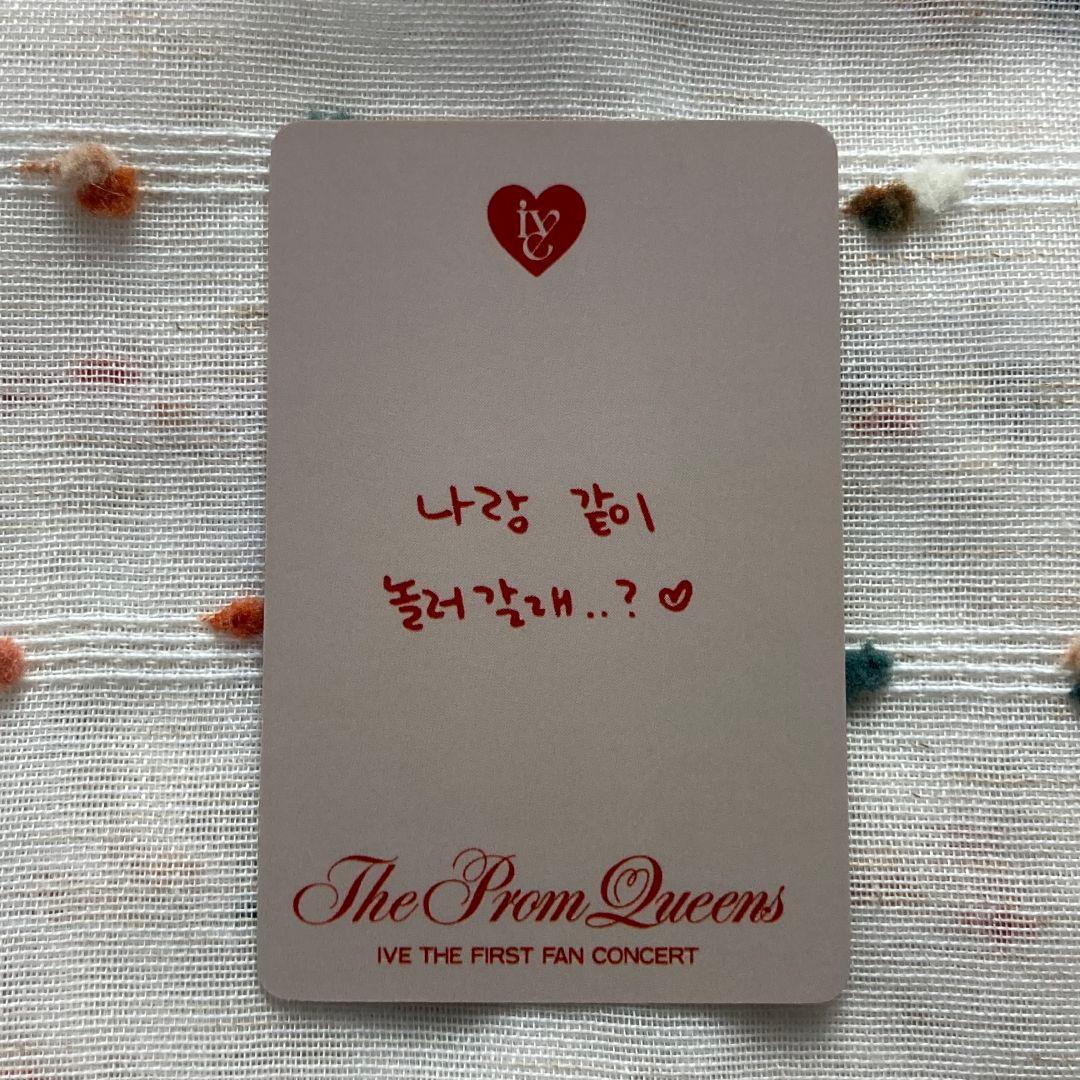 ive
나랑 같이
놀러갈래..?♡
The Prom Queens
IVE THE FIRST FAN CONCERT